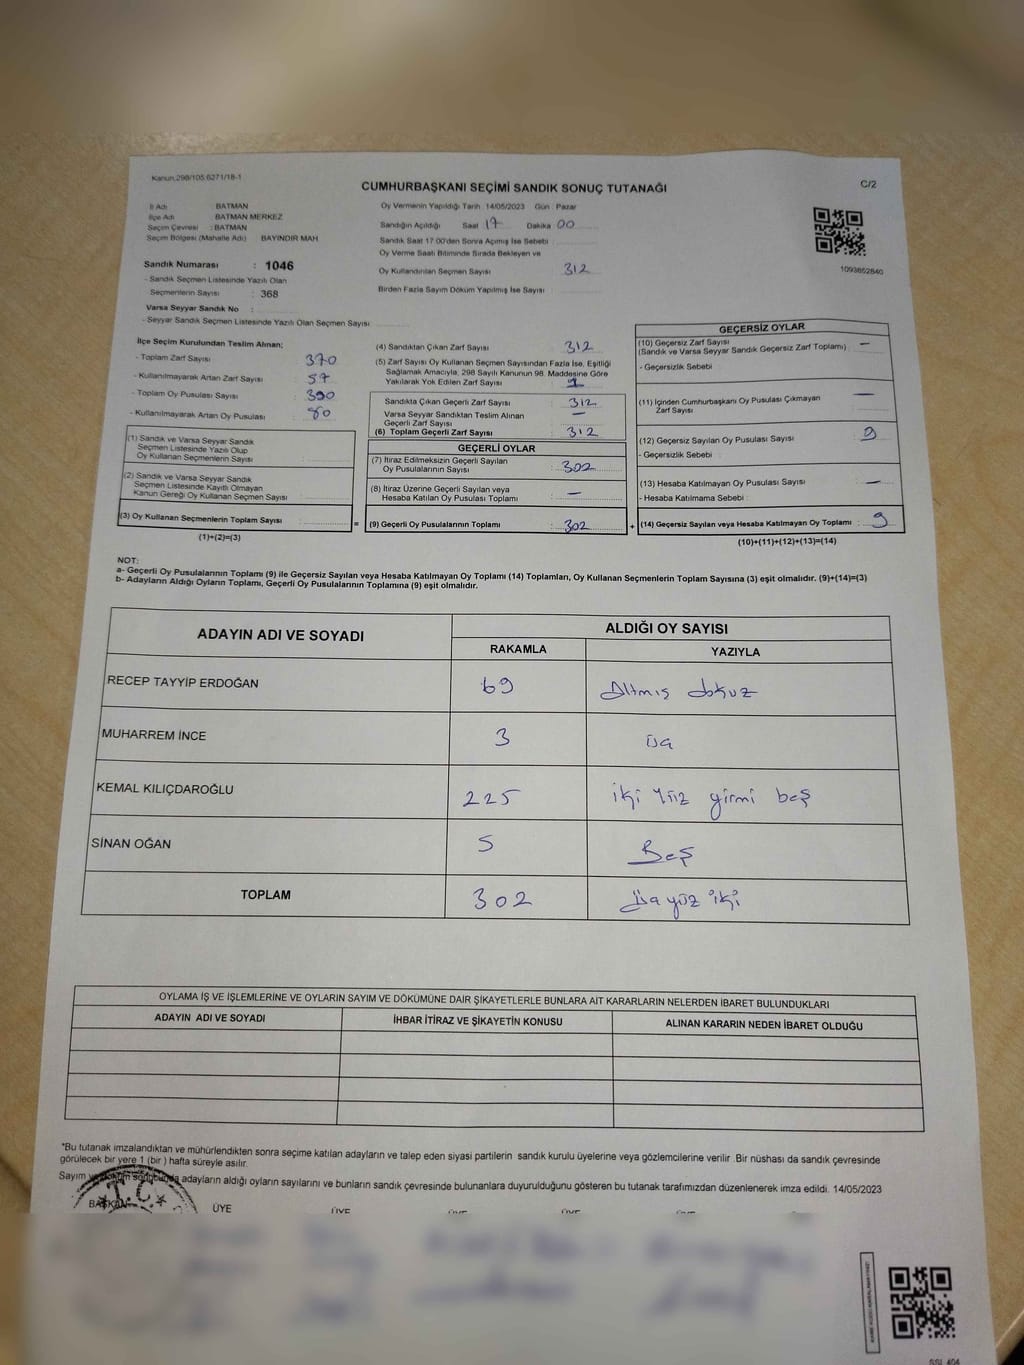 Kanun.298/105.6271/18-1
CUMHURBAŞKANI SEÇİMİ SANDIK SONUÇ TUTANAĞI
C/2
İl Adı BATMAN
İlçe Adı BATMAN MERKEZ
Seçim Çevresi : BATMAN
Seçim Bölgesi (Mahalle Adı) BAYINDIR MAH
Sandık Numarası : 1046
- Sandık Seçmen Listesinde Yazılı Olan
Seçmenlerin Sayısı : 368
Varsa Seyyar Sandık No :
- Seyyar Sandık Seçmen Listesinde Yazılı Olan Seçmen Sayısı :
Oy Vermenin Yapıldığı Tarih 14/05/2023 Gün : Pazar
Sandığın Açıldığı Saat 17 Dakika 00
Sandık Saat 17 00'den Sonra Açımış İse Sebebi :
Oy Verme Saati Bitiminde Sırada Bekleyen ve
Oy Kullandırılan Seçmen Sayısı 312
Birden Fazla Sayım Döküm Yapılmış İse Sayısı
1093852840
İlçe Seçim Kurulundan Teslim Alınan;
- Toplam Zarf Sayısı 370
- Kullanılmayarak Artan Zarf Sayısı 57
- Toplam Oy Pusulası Sayısı 390
- Kullanılmayarak Artan Oy Pusulası 80
(1) Sandık ve Varsa Seyyar Sandık
Seçmen Listesinde Yazılı Olup
Oy Kullanan Seçmenlerin Sayısı :
(2) Sandık ve Varsa Seyyar Sandık
Seçmen Listesinde Kayıtlı Olmayan
Kanun Gereği Oy Kullanan Seçmen Sayısı :
(3) Oy Kullanan Seçmenlerin Toplam Sayısı :
(1)+(2)=(3)
(4) Sandıktan Çıkan Zarf Sayısı 312
(5) Zarf Sayısı Oy Kullanan Seçmen Sayısından Fazla İse, Eşitliği
Sağlamak Amacıyla, 298 Sayılı Kanunun 98. Maddesine Göre
Yakılarak Yok Edilen Zarf Sayısı
Sandıkta Çıkan Geçerli Zarf Sayısı : 312
Varsa Seyyar Sandıktan Teslim Alınan
Geçerli Zarf Sayısı : —
(6) Toplam Geçerli Zarf Sayısı : 312
GEÇERLİ OYLAR
(7) İtiraz Edilmeksizin Geçerli Sayılan
Oy Pusulalarının Sayısı : 302
(8) İtiraz Üzerine Geçerli Sayılan veya
Hesaba Katılan Oy Pusulası Toplamı : —
=
(9) Geçerli Oy Pusulalarının Toplamı : 302
+
GEÇERSİZ OYLAR
(10) Geçersiz Zarf Sayısı
(Sandık ve Varsa Seyyar Sandık Geçersiz Zarf Toplamı) : —
- Geçersizlik Sebebi :
(11) İçinden Cumhurbaşkanı Oy Pusulası Çıkmayan
Zarf Sayısı : —
(12) Geçersiz Sayılan Oy Pusulası Sayısı : 9
- Geçersizlik Sebebi :
(13) Hesaba Katılmayan Oy Pusulası Sayısı : —
- Hesaba Katılmama Sebebi :
(14) Geçersiz Sayılan veya Hesaba Katılmayan Oy Toplamı : 9
(10)+(11)+(12)+(13)=(14)
NOT:
a- Geçerli Oy Pusulalarının Toplamı (9) ile Geçersiz Sayılan veya Hesaba Katılmayan Oy Toplamı (14) Toplamları, Oy Kullanan Seçmenlerin Toplam Sayısına (3) eşit olmalıdır. (9)+(14)=(3)
b- Adayların Aldığı Oyların Toplamı, Geçerli Oy Pusulalarının Toplamına (9) eşit olmalıdır.
ADAYIN ADI VE SOYADI
ALDIĞI OY SAYISI
RAKAMLA YAZIYLA
RECEP TAYYİP ERDOĞAN 69 Altmış dokuz
MUHARREM İNCE 3 üç
KEMAL KILIÇDAROĞLU 225 iki Yüz yirmi beş
SİNAN OĞAN 5 Beş
TOPLAM 302 üçyüz iki
OYLAMA İŞ VE İŞLEMLERİNE VE OYLARIN SAYIM VE DÖKÜMÜNE DAİR ŞİKAYETLERLE BUNLARA AİT KARARLARIN NELERDEN İBARET BULUNDUKLARI
ADAYIN ADI VE SOYADI İHBAR İTİRAZ VE ŞİKAYETİN KONUSU ALINAN KARARIN NEDEN İBARET OLDUĞU
*Bu tutanak imzalandıktan ve mühürlendikten sonra seçime katılan adayların ve talep eden siyasi partilerin sandık kurulu üyelerine veya gözlemcilerine verilir .Bir nüshası da sandık çevresinde
görülecek bir yere 1 (bir ) hafta süreyle asılır.
Sayım ve döküm sonucunda adayların aldığı oyların sayılarını ve bunların sandık çevresinde bulunanlara duyurulduğunu gösteren bu tutanak tarafımızdan düzenlenerek imza edildi. 14/05/2023
T.C.
BAŞKAN ÜYE ÜYE ÜYE ÜYE